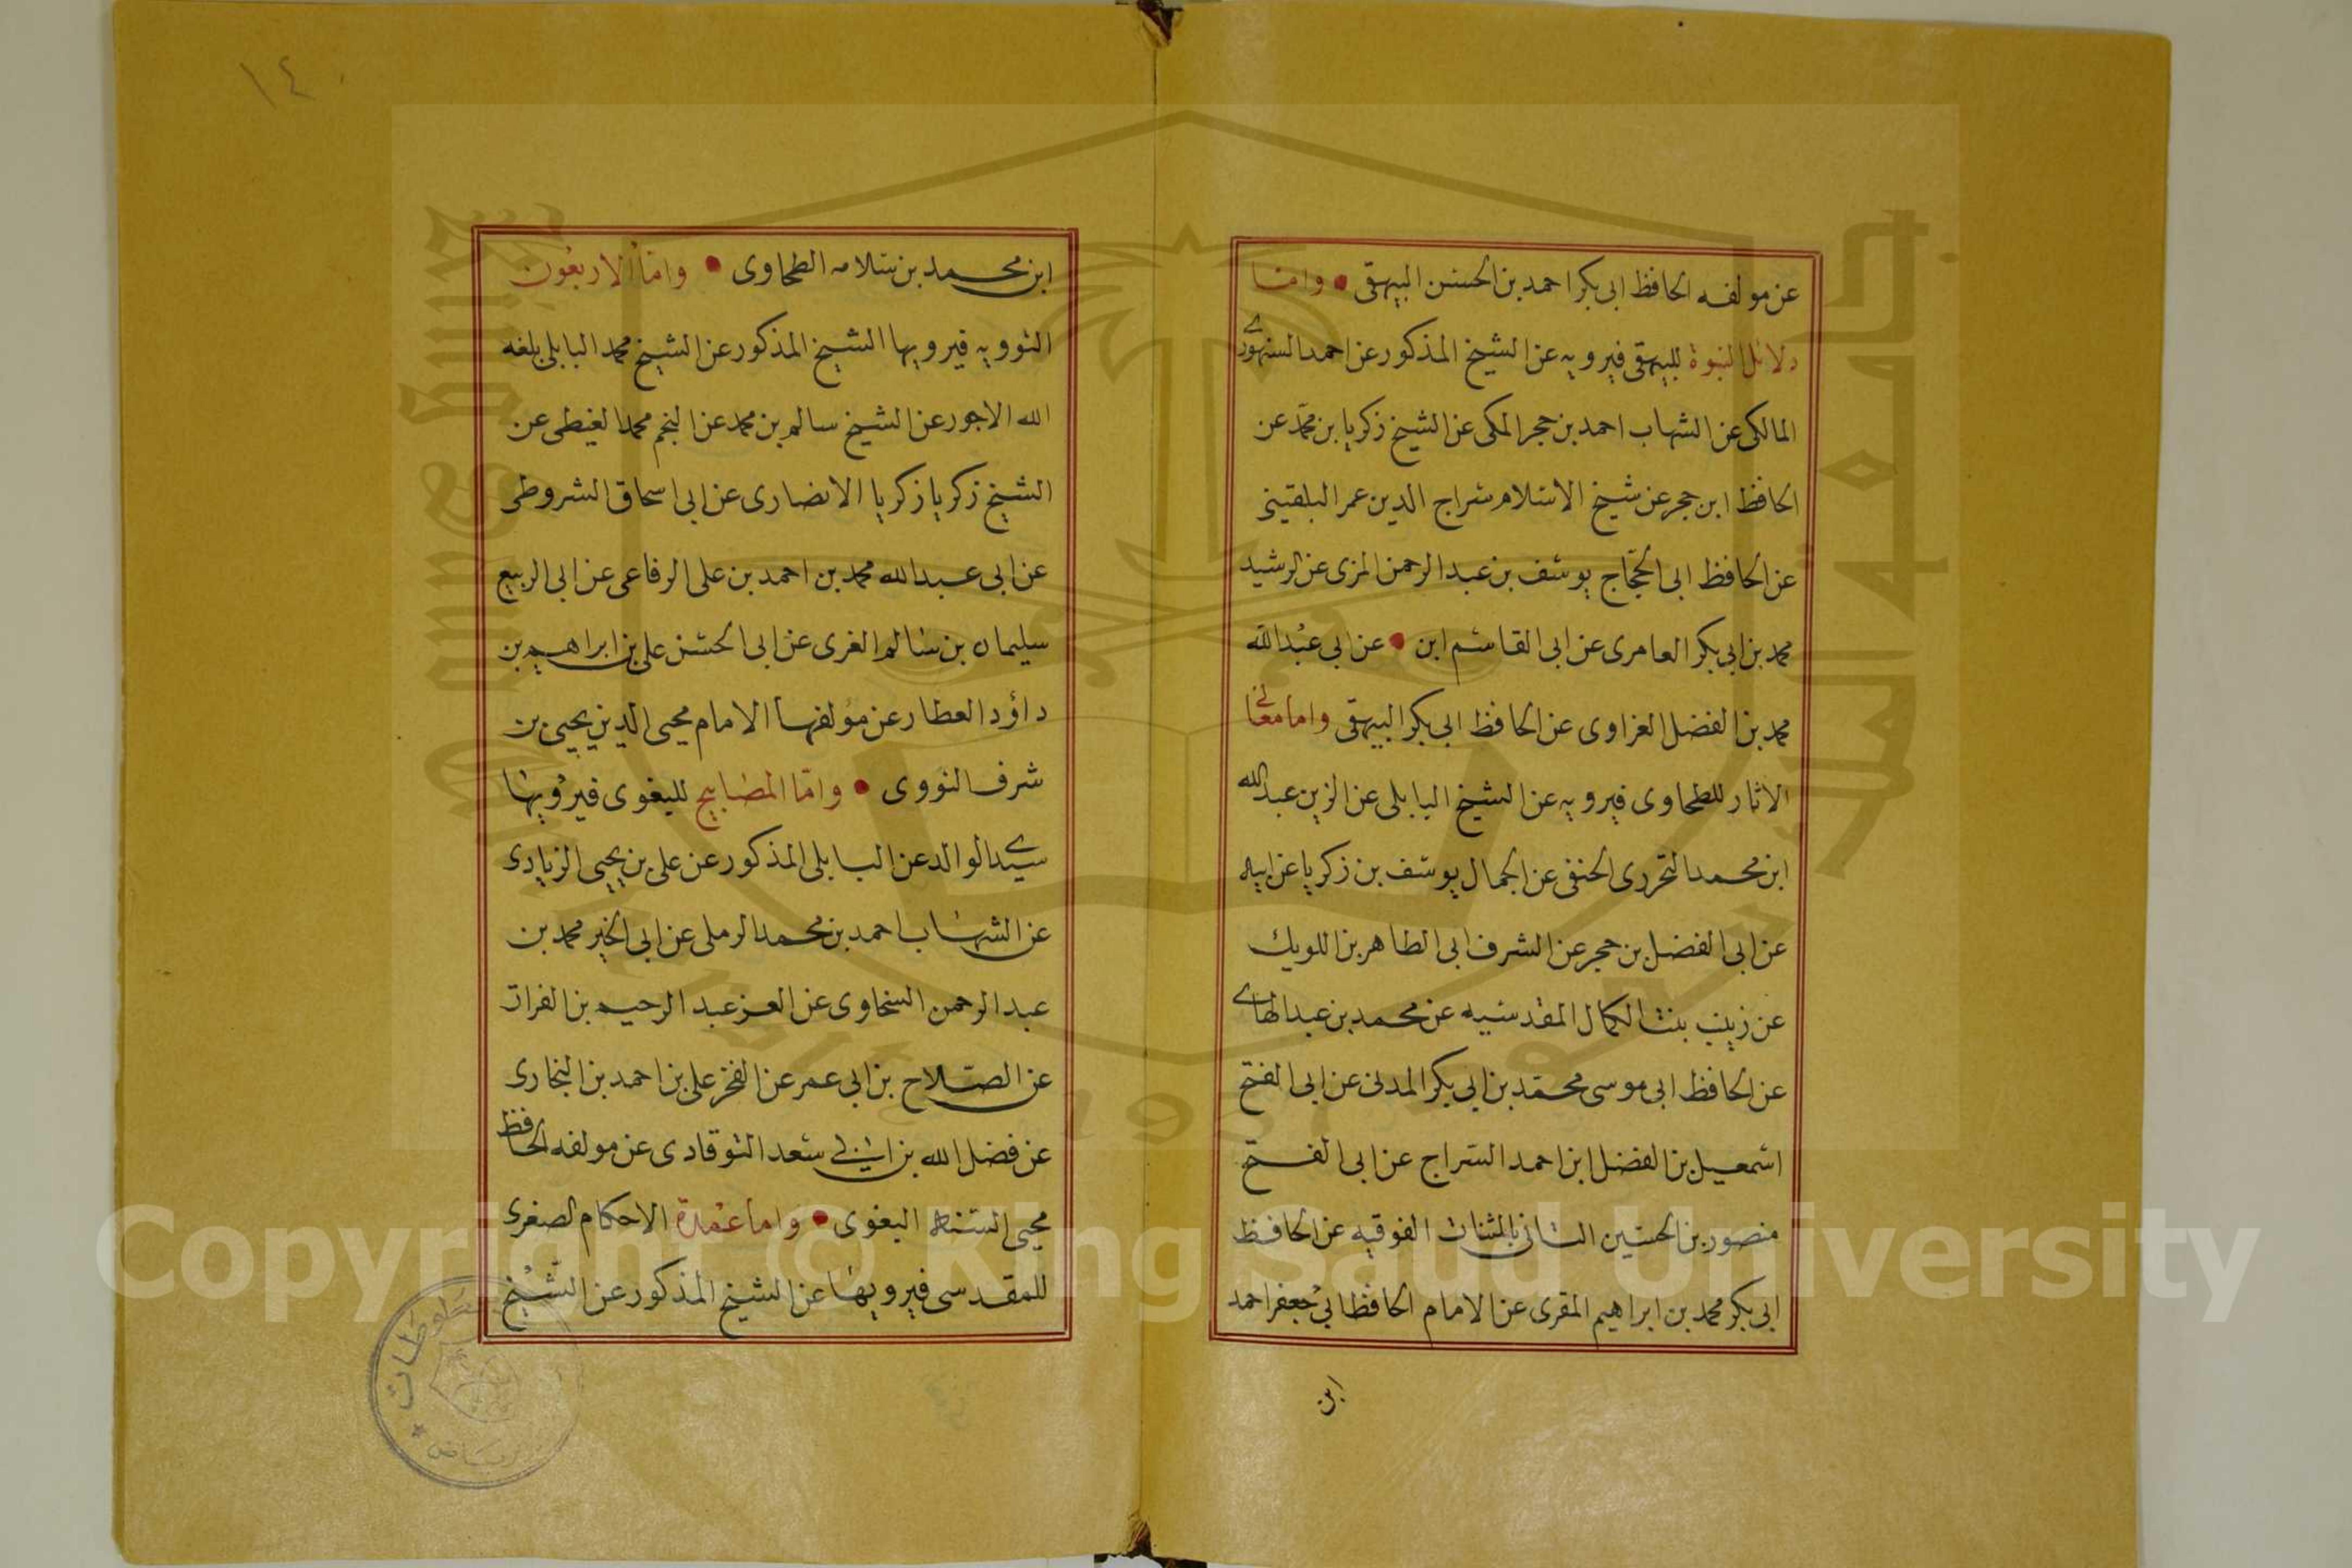 عن مولفه الحافظ ابى بكر احمد بن الحسن البيهقى • واما
دلائل النبوة للبيهقى فيرويه عن الشيخ المذكور عن احمد السنهورى
المالكى عن الشهاب احمد بن حجر المكى عن الشيخ زكريا بن محمد عن
الحافظ ابن حجر عن شيخ الاسلام سراج الدين عمر البلقينى
عن الحافظ ابى الحجّاج يوسف بن عبد الرحمن المزى عن الرشيد
محمد بن ابى بكر العامرى عن ابى القاسم ابن • عن ابى عبد الله
محمد بن الفضل الغراوى عن الحافظ ابى بكر البيهقى واما معانى
الاثار للطحاوى فيرويه عن الشيخ البابلى عن الزين عبد الله
ابن محمد النحررى الحنفى عن الجمال يوسف بن زكريا عن ابيه
عن ابى الفضل بن حجر عن الشرف ابى الطاهر بن اللويك
عن زينب بنت الكمال المقدسيه عن محمد بن عبد الهادى
عن الحافظ ابى موسى محمد بن ابى بكر المدنى عن ابى الفتح
اسمعيل بن الفضل ابن احمد السراج عن ابى الفتح
منصور بن الحسين التانى بالمثناة الفوقيه عن الحافظ
ابى بكر محمد بن ابراهيم المقرى عن الامام الحافظ ابى جعفر احمد
ابن
١٤٠
ابن محمد بن سلامه الطحاوى • وامّا الاربعون
النوويه فيرويها الشيخ المذكور عن الشيخ محمد البابلى بلغه
الله الاجور عن الشيخ سالم بن محمد عن النجم محمد الغيطى عن
الشيخ زكريا زكريا الانصارى عن ابى اسحاق الشروطى
عن ابى عبد الله محمد بن احمد بن على الرفاعى عن ابى الربيع
سليمان بن سالم الغرى عن ابى الحسن على بن ابراهيم بن
داؤد العطار عن مؤلفها الامام محيى الدين يحيى بن
شرف النووى • وامّا المصابيح لليغوى فيرويها
سيدى الوالد عن البابلى المذكور عن على بن يحيى الزيادى
عن الشهاب احمد بن محمد الرملى عن ابى الخير محمد بن
عبد الرحمن السخاوى عن العز عبد الرحيم بن الفرات
عن الصلاح بن ابى عمر عن الفخر على بن احمد بن البخارى
عن فضل الله بن ابى سعد النوقادى عن مولفه الحافظ
محيى السنه البغوى • واما عمدة الاحكام الصغرى
للمقدسى فيرويها عن الشيخ المذكور عن الشيخ
Copyright © King Saud University